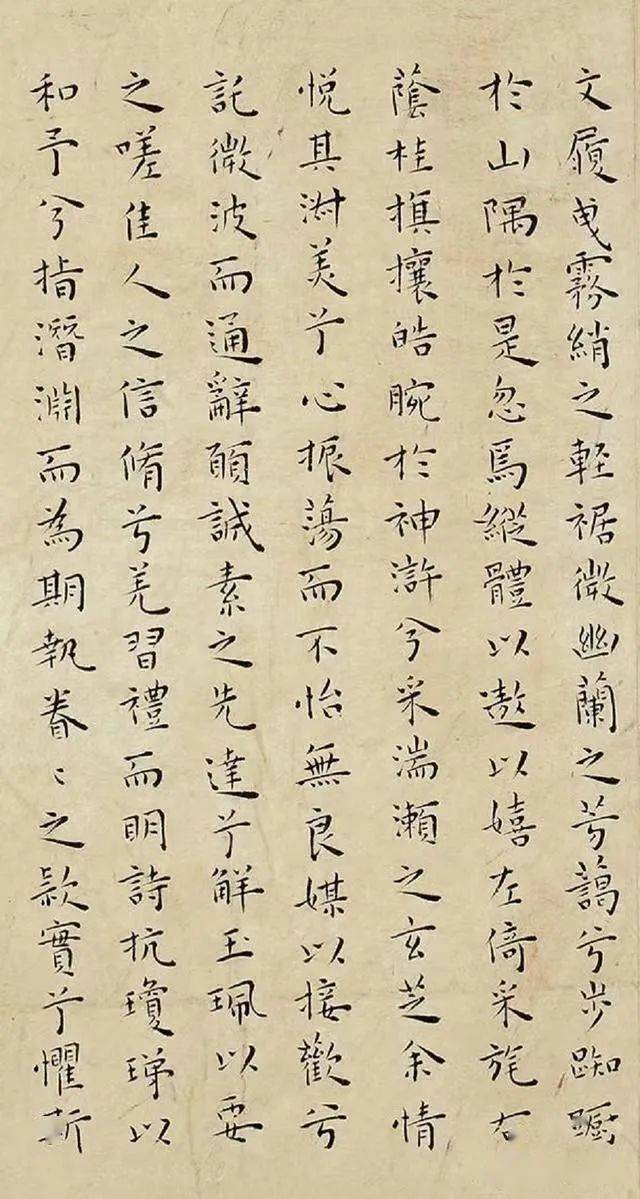 文履曳霧綃之輕裾微幽蘭之芳藹兮步踟躕
於山隅於是忽焉縱體以遨以嬉左倚采旄右
蔭桂旗攘皓腕於神滸兮采湍瀨之玄芝余情
悅其淑美兮心振蕩而不怡無良媒以接歡兮
託微波而通辭願誠素之先達兮解玉珮以要
之嗟佳人之信脩兮羌習禮而明詩抗瓊珶以
和予兮指潛淵而為期執眷〻之款實兮懼斯